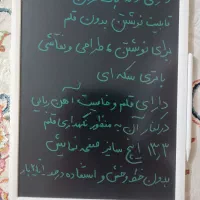 قابلیت نوشتن بدون قلم
برای نوشتن، طراحی و نقاشی
باتری سکه ای
دارای قلم و خاصیت آهن ربایی
در کنار آن به منظور نگهداری قلم
۱۳.۳ اینچ سایز صفحه نمایش
بدون خط و خش و استفاده در حد ۱ یا ۲ بار